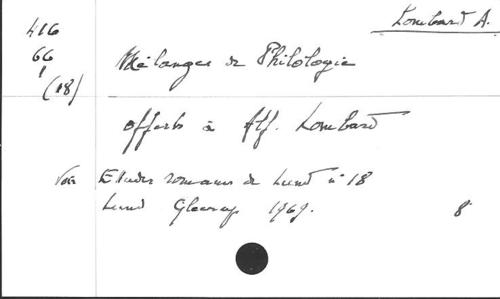 Lombard A.
416
66
1
(18)
Mélanges de Philologie
offerts à Alf. Lombard
Voir Etudes romanes de Lund n° 18
Lund Gleerup 1969. 8°